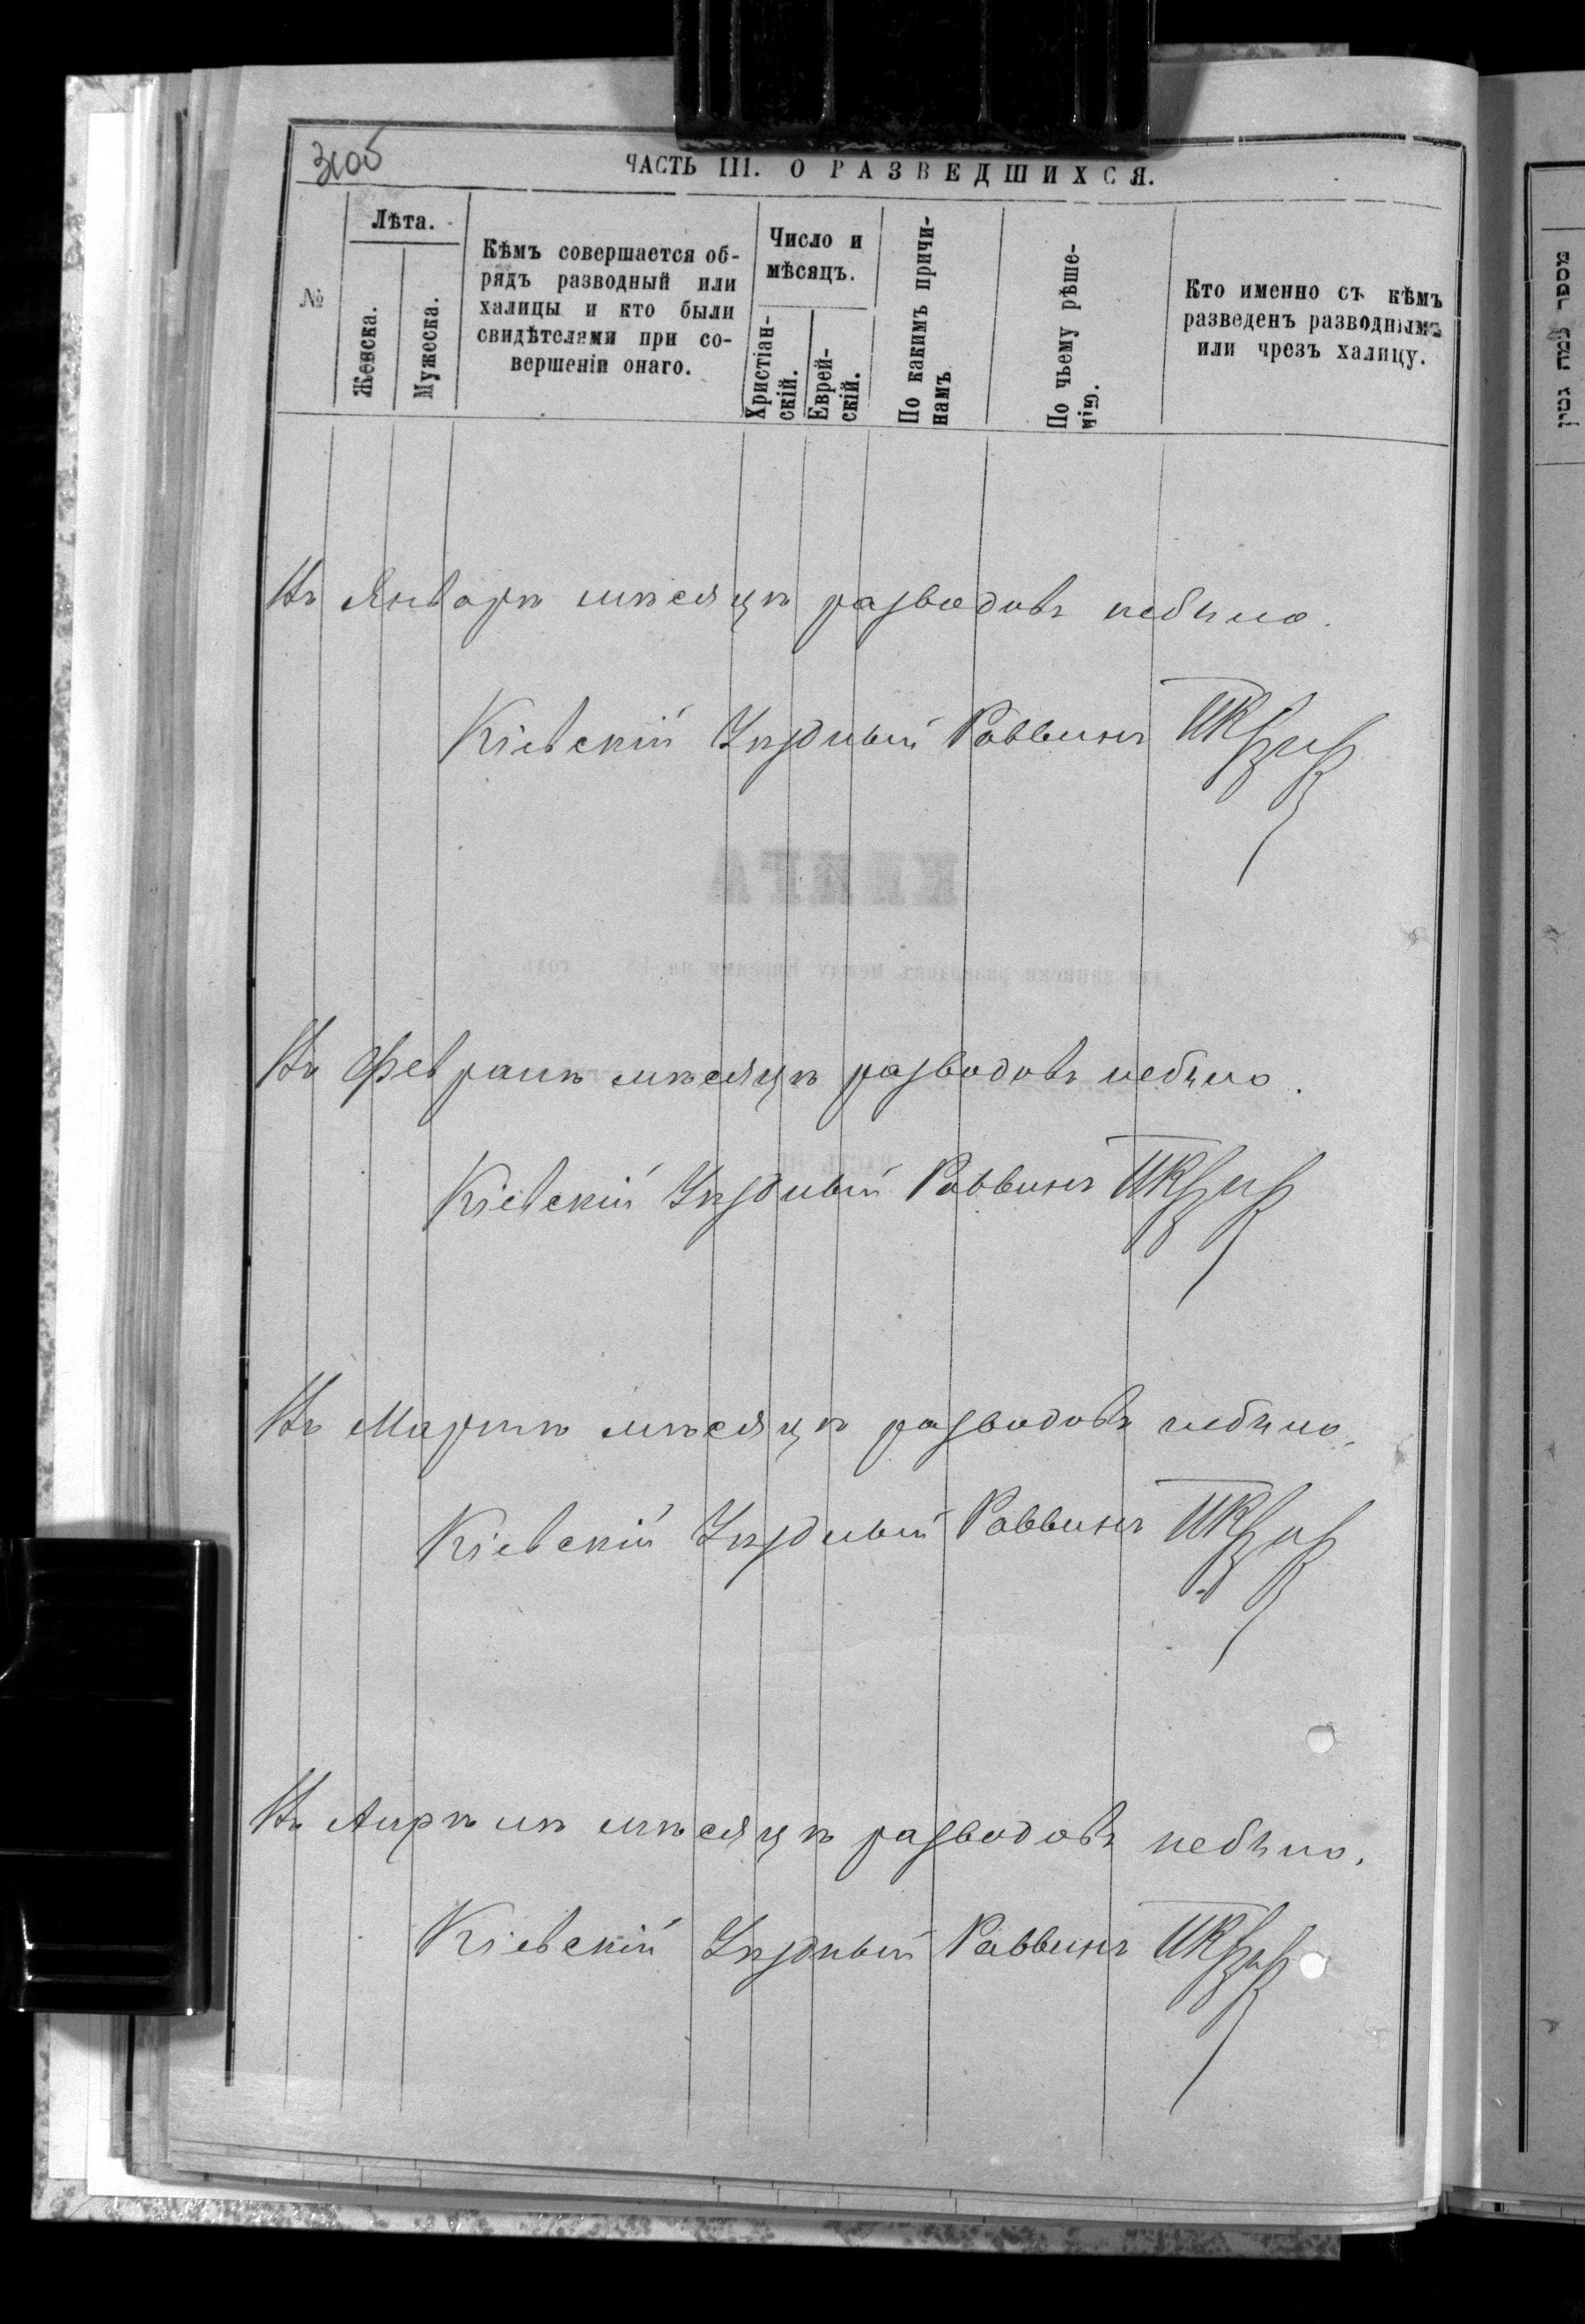 3об
ЧАСТЬ III. О РАЗВЕДШИХСЯ.
№
Лѣта.
Женска.
Мужеска.
Кѣмъ совершается об-
рядъ разводный или
халицы и кто были
свидѣтелями при со-
вершеніи онаго.
Число и
мѣсяцъ.
Христіан-
скій.
Еврей-
скій.
По какимъ причи-
намъ
По чьему рѣше-
нію.
Кто именно съ кѣмъ
разведенъ разводнымъ
или чрезъ халицу.
Въ Январѣ мѣсяцѣ разводовъ небыло.
Кіевскій Уѣздный Раввинъ
КНИГА
Въ Февралѣ мѣсяцѣ разводовъ небыло.
Кіевскій Уѣздный Раввинъ
Въ Мартѣ мѣсяцѣ разводовъ небыло.
Кіевскій Уѣздный Раввинъ
Въ Апрѣлѣ мѣсяцѣ разводовъ небыло.
Кіевскій Уѣздный Раввинъ